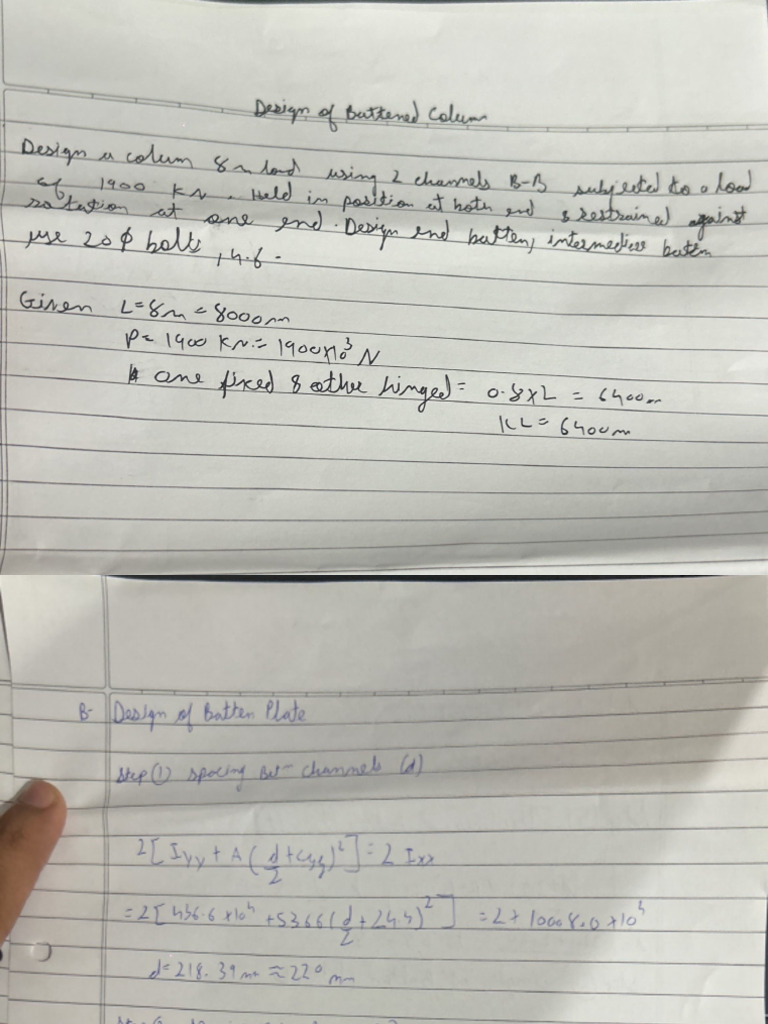 Design of Battened Column
Design a colum 8m load using 2 channels B-B subjected to a load
of 1900 KN. Held in position at both end & restrained against
rotation at one end. Design end batten, intermediate batten
use 20 φ bolts, 4.6.
Given L=8m = 8000mm
P= 1900 KN = 1900x10³ N
one fixed & other hinged = 0.8xL = 6400m
KL= 6400m
B- Design of Batten Plate
Step (1) spacing bet- channels (d)
2[Iyy + A(d/2+Cyy)²] = 2 Ixx
=2[436.6 x10⁴ +5366(d/2 + 24.4)²] = 2 x 10008.0 x10⁴
d=218.39 mm ≈ 220 mm